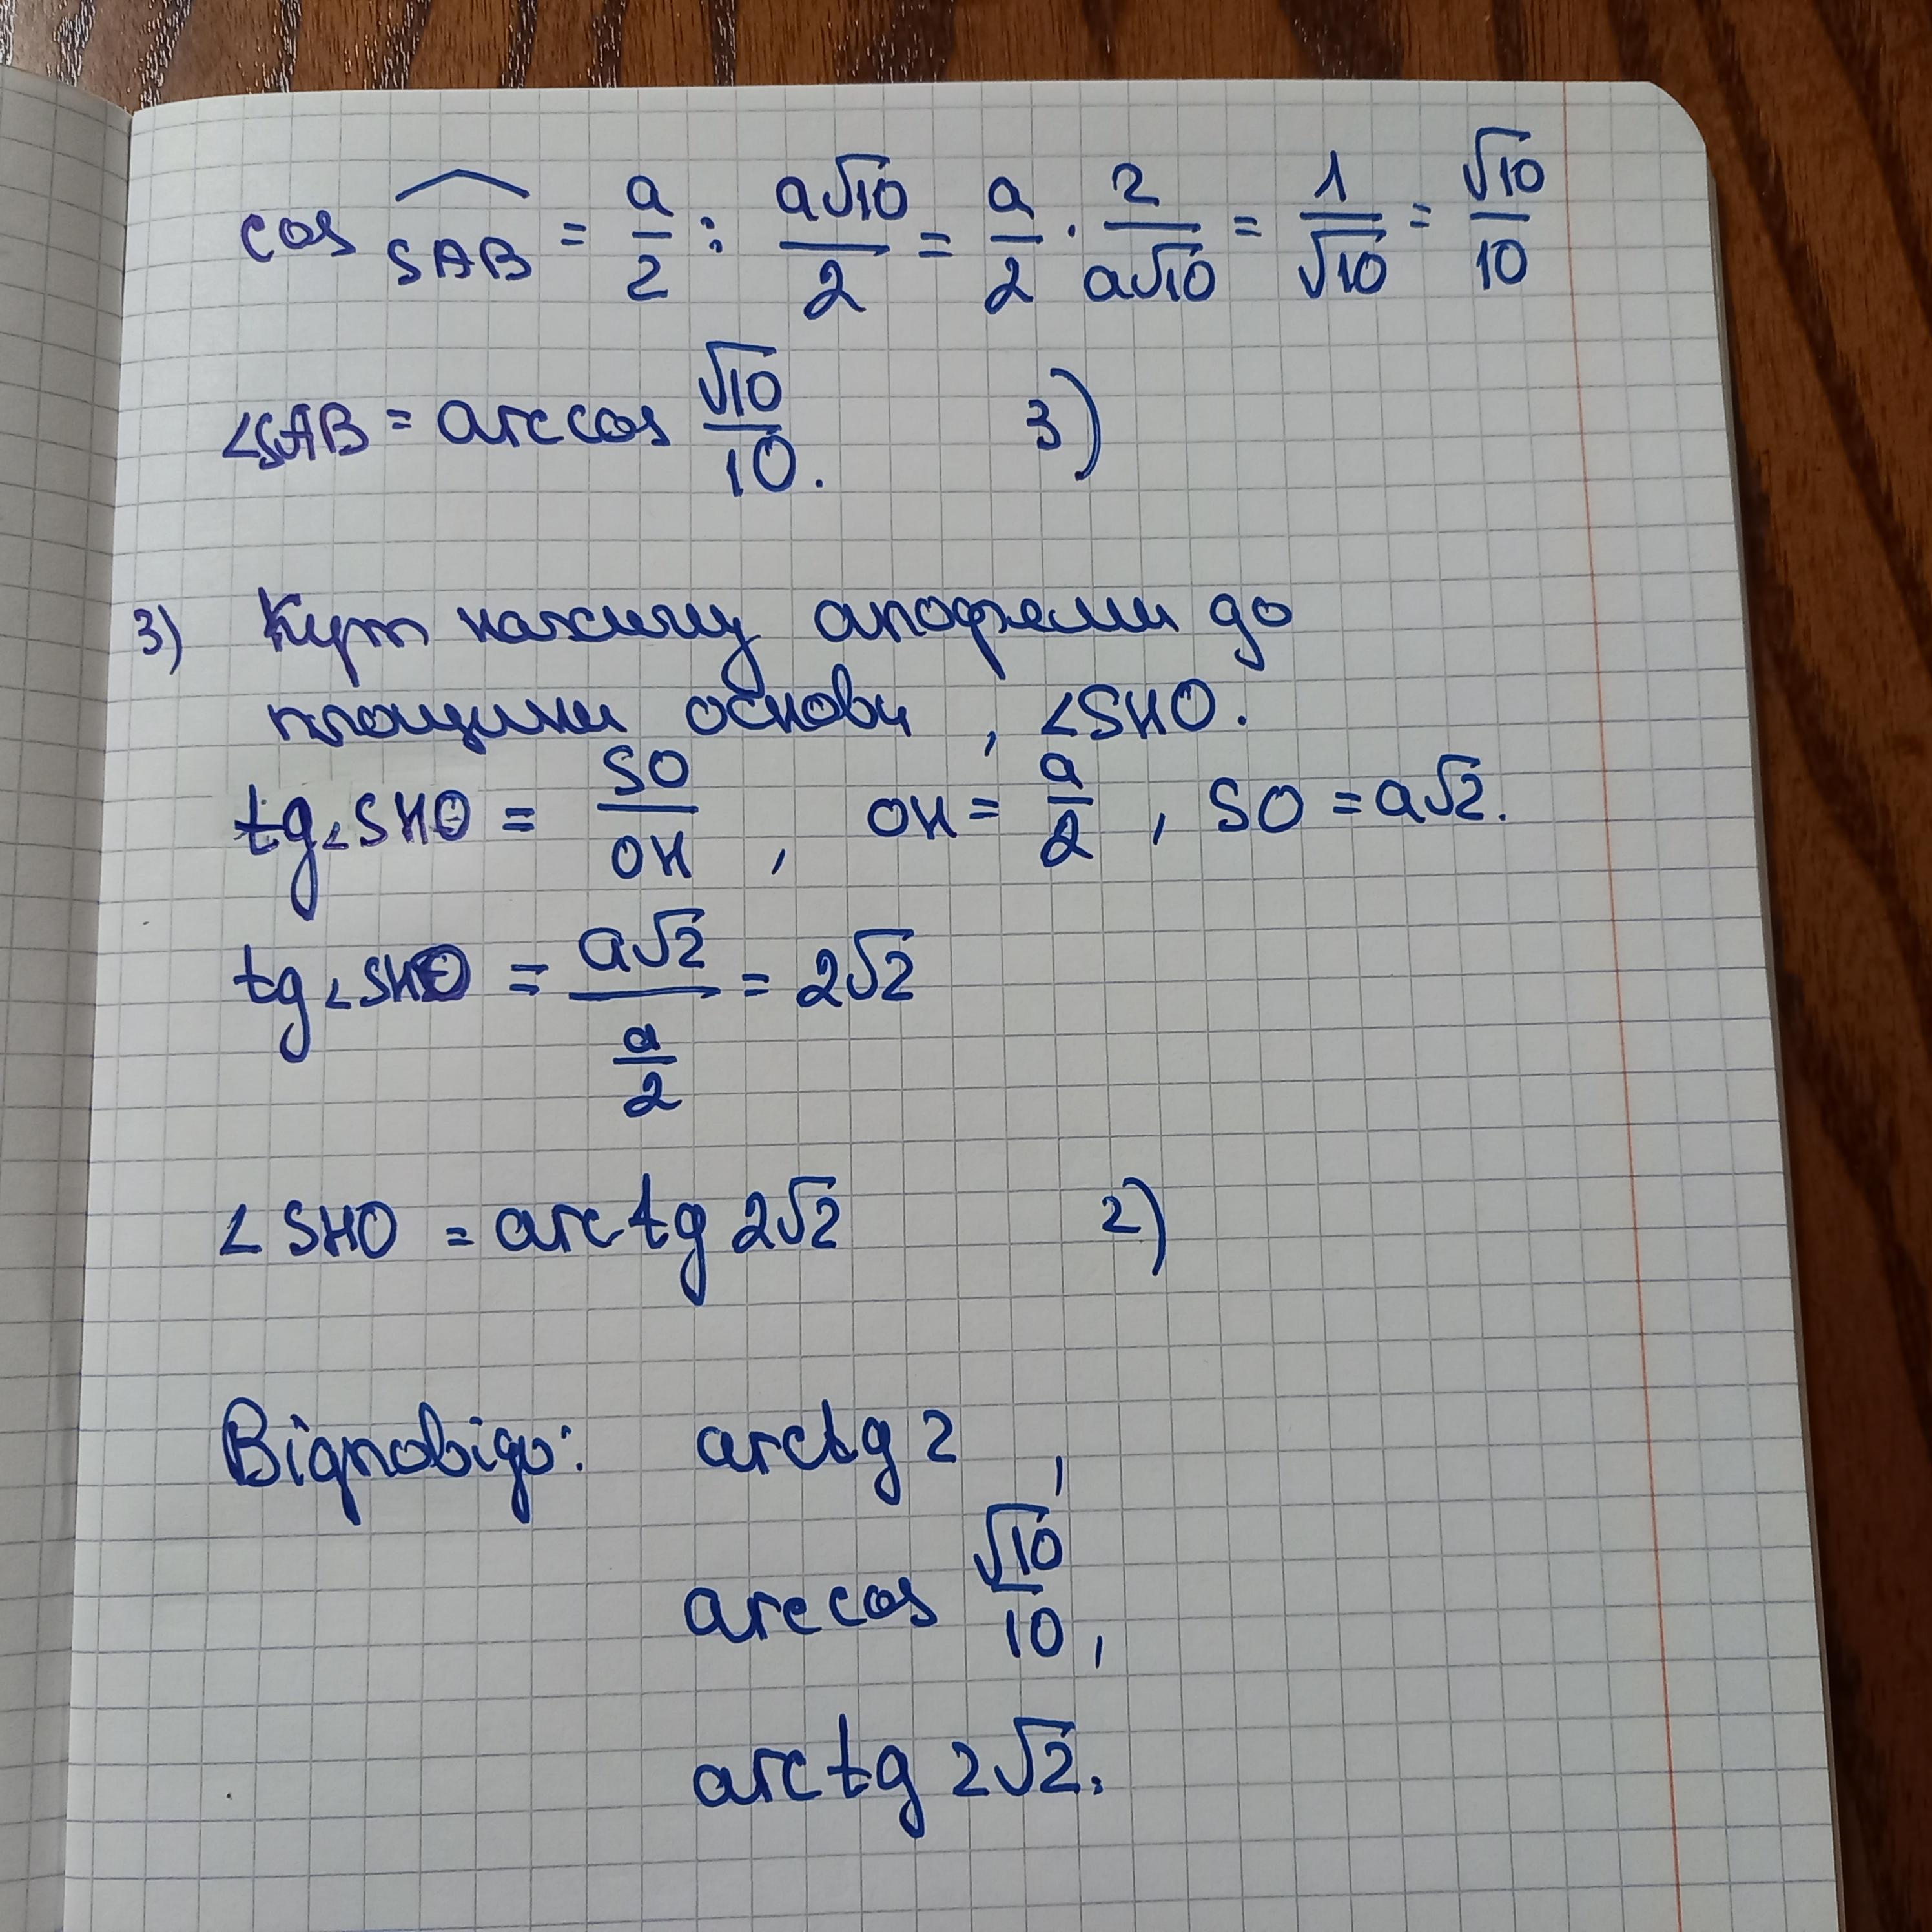 cos SAB = a/2 : a√10/2 = a/2 · 2/a√10 = 1/√10 = √10/10
∠SAB = arccos √10/10. 3)
3) Кут нахилу апофеми до
площини основи, ∠SHO.
tg∠SHO = SO/OH, OH = a/2, SO = a√2.
tg∠SHO = a√2/(a/2) = 2√2
∠SHO = arctg 2√2 2)
Відповідь: arctg 2,
arccos √10/10,
arctg 2√2.